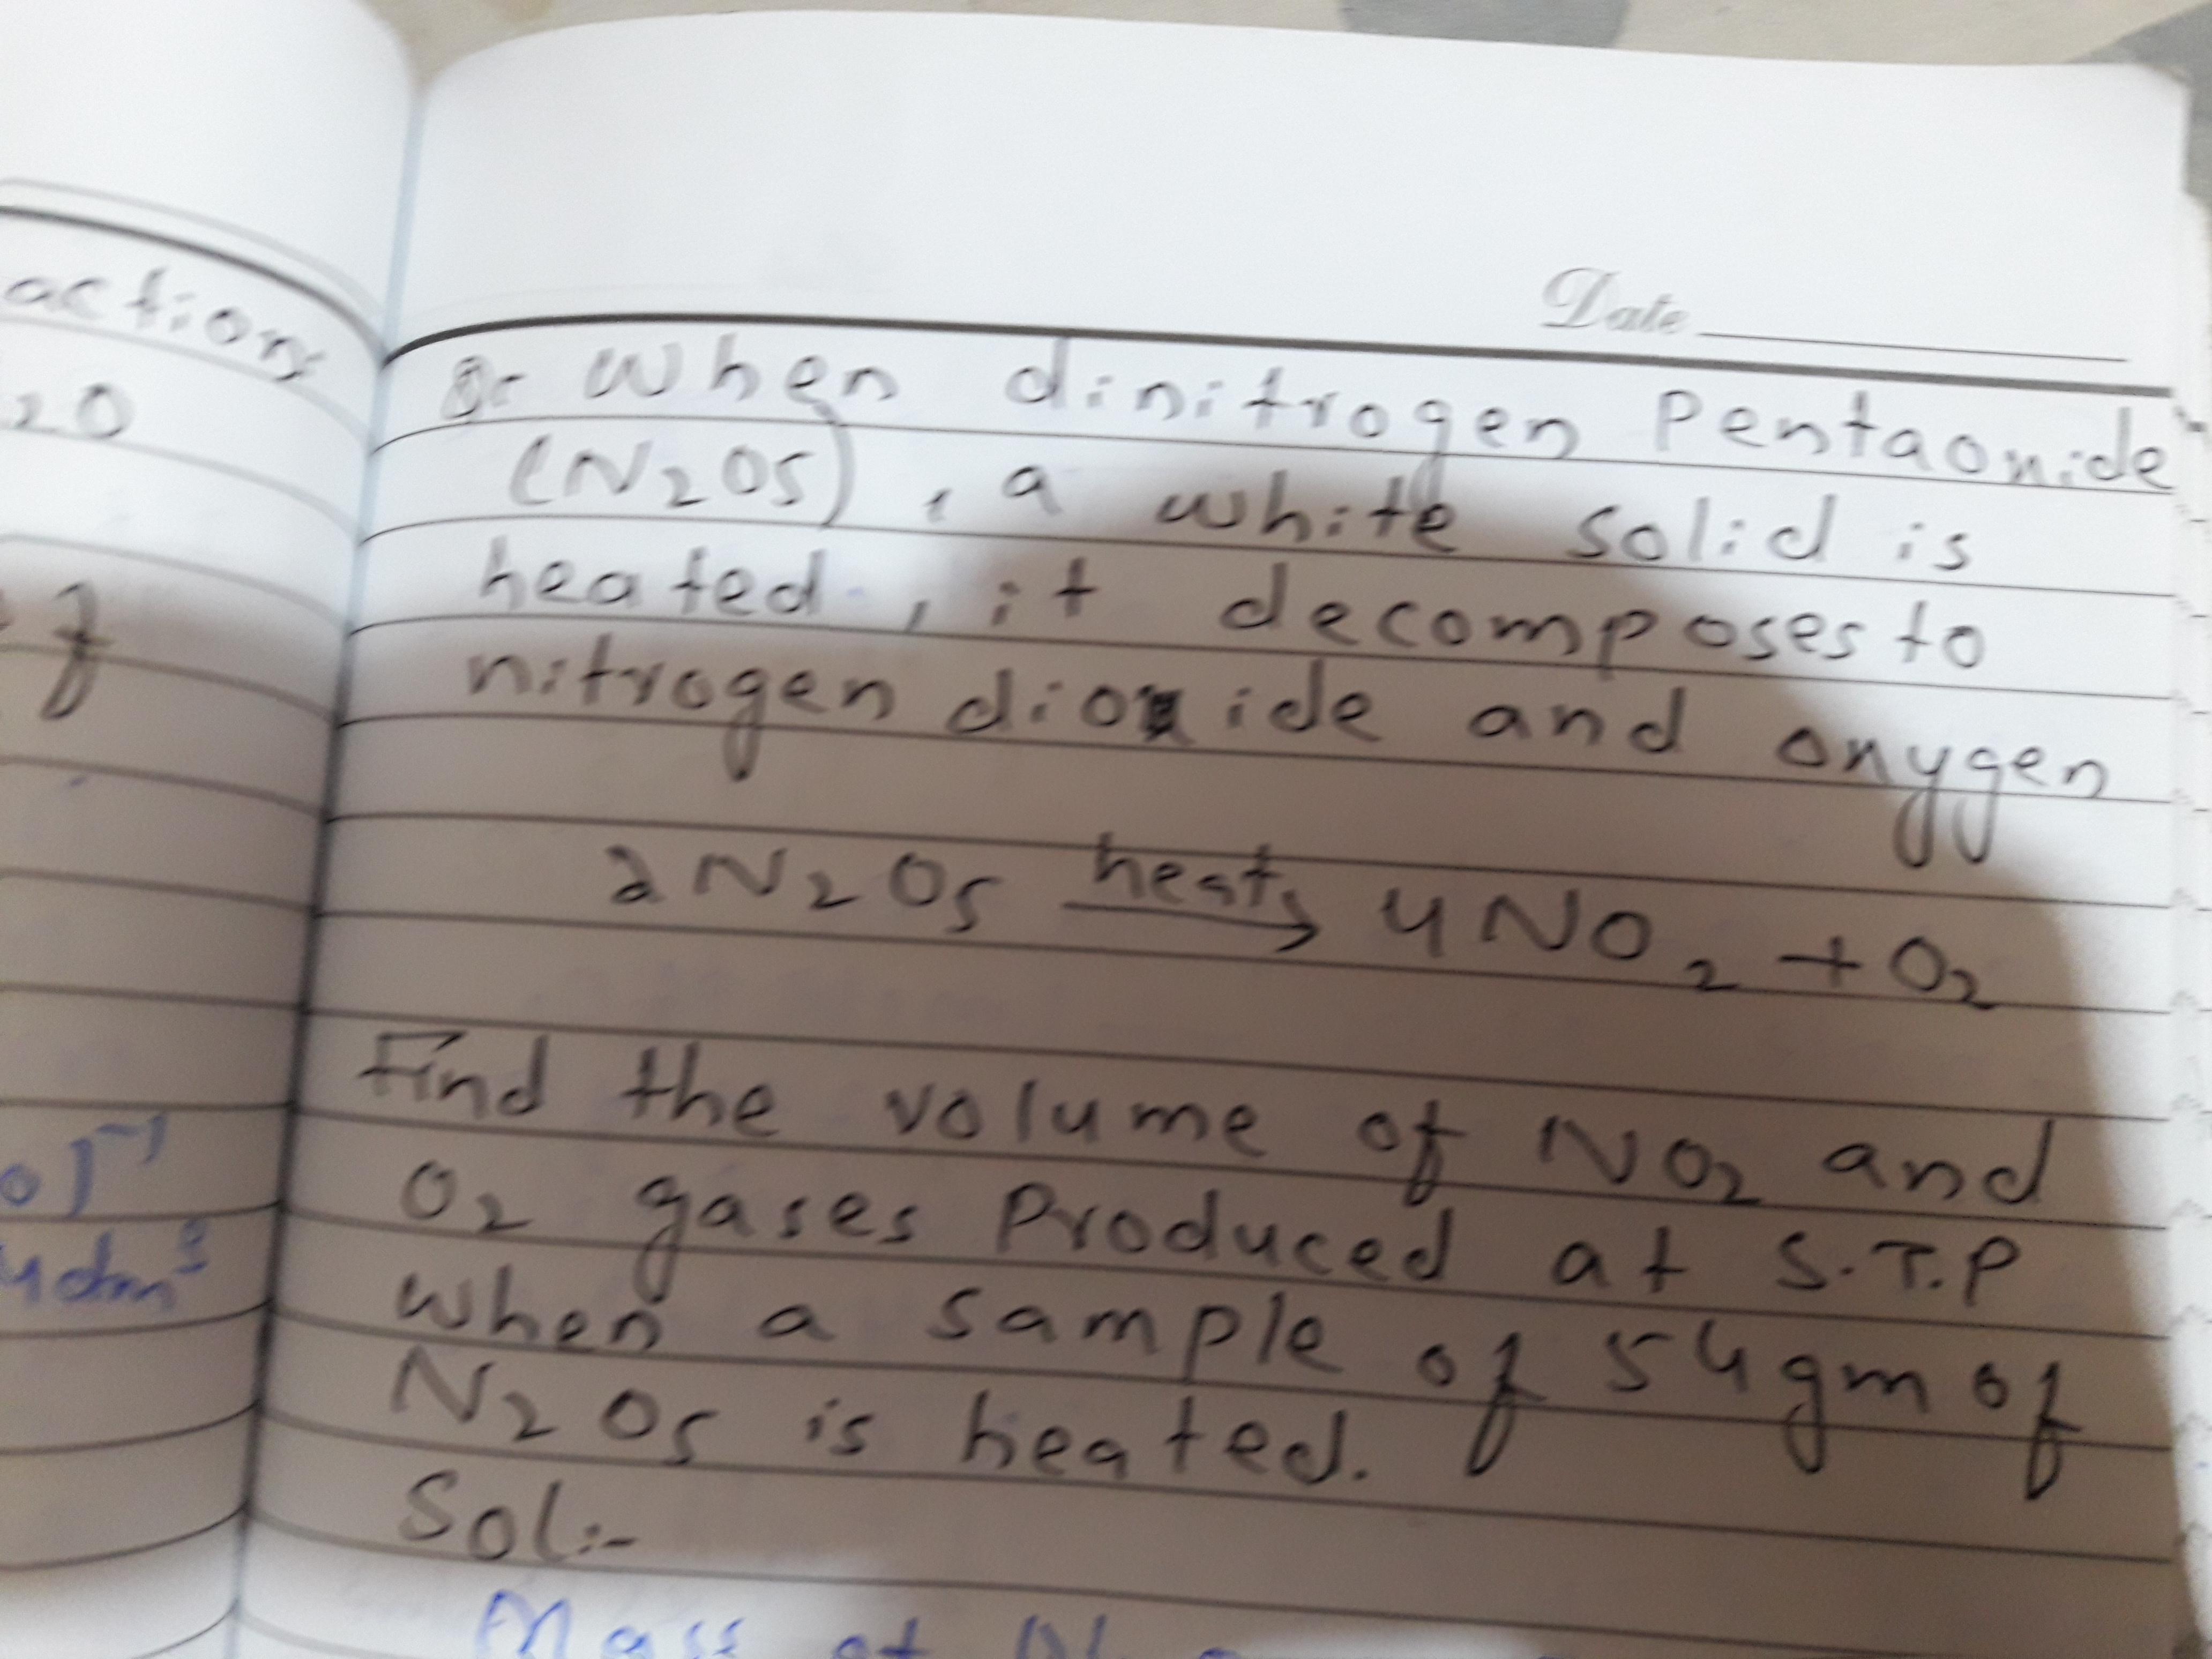 actions
20
of
ol⁻¹
4dm³
Date
Q:- When dinitrogen Pentaoxide
(N₂O₅), a white solid is
heated, it decomposes to
nitrogen dioxide and oxygen
2N₂O₅ heat→ 4NO₂ + O₂
Find the volume of NO₂ and
O₂ gases Produced at S.T.P
when a sample of 54gm of
N₂O₅ is heated.
Sol:-
Mass of N